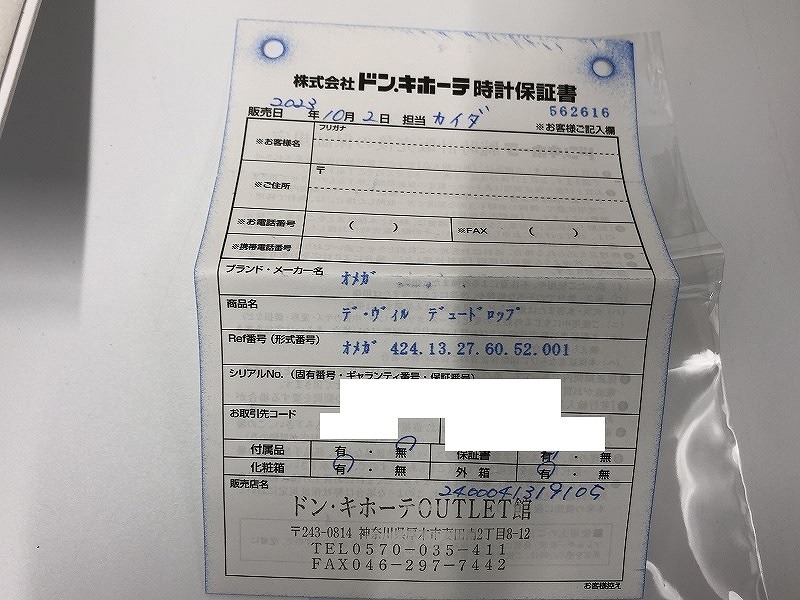 株式会社 ドン.キホーテ 時計保証書
562616
販売日 2023 年 10 月 2 日 担当 カイダ ※お客様ご記入欄
※お客様名 フリガナ
※ご住所 〒
※お電話番号 ( ) ※FAX ( )
※携帯電話番号
ブランド・メーカー名 オメガ
商品名 デ・ヴィル デュードロップ
Ref番号(形式番号) オメガ 424.13.27.60.52.001
シリアルNo.(固有番号・ギャランティ番号・保証番号)
お取引先コード
付属品 有 ・ 無 保証書 有 ・ 無
化粧箱 有 ・ 無 外箱 有 ・ 無
販売店名 2400041319105
ドン・キホーテOUTLET館
〒243-0814 神奈川県厚木市妻田南2丁目8-12
TEL0570-035-411
FAX046-297-7442
お客様控え